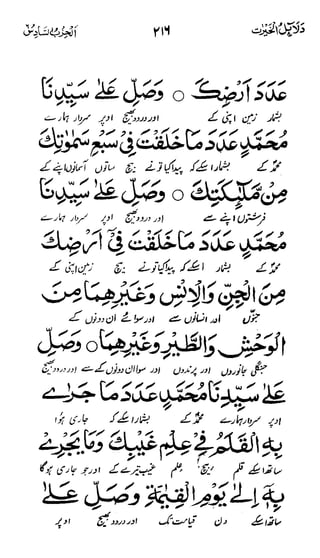 دلائل الخیرت ۲۱۶ الحزب السادس
عَدَدَ اَرْضِكَ ○ وَصَلِّ عَلٰى سَيِّدِنَا
بشمار زمین اپنی کے اور درود بھیج اوپر سردار ہمارے
مُحَمَّدٍ عَدَدَ مَا خَلَقْتَ فِىْ سَبْعِ سَمٰوٰتِكَ
محمدؐ کے بشمار اسکے کہ پیدا کیا تونے بیچ ساتوں آسمانوں اپنے کے
مِنْ مَّلٰٓئِكَتِكَ ○ وَصَلِّ عَلٰى سَيِّدِنَا
فرشتوں اپنے سے اور درود بھیج اوپر سردار ہمارے
مُحَمَّدٍ عَدَدَ مَا خَلَقْتَ فِىْٓ اَرْضِكَ
محمدؐ کے بشمار اسکے کہ پیدا کیا تونے بیچ زمین اپنی کے
مِنَ الْجِنِّ وَالْاِنْسِ وَغَيْرِهِمَا مِنَ
جنوں اور انسانوں سے اور سوائے ان دونوں کے
الْوَحْشِ وَالطَّيْرِ وَغَيْرِهِمَا ○ وَصَلِّ
جنگلی جانوروں اور پرندوں اور سوا ان دونوں کے سے اور درود بھیج
عَلٰى سَيِّدِنَا مُحَمَّدٍ عَدَدَ مَا جَرٰى
اوپر سردار ہمارے محمدؐ کے بشمار اسکے کہ جاری ہُوا
بِهِ الْقَلَمُ فِىْ عِلْمِ غَيْبِكَ وَمَا يَجْرِىْ
ساتھ اسکے قلم بیچ علم غیب تیرے کے اور جو جاری ہوگا
بِهٖٓ اِلٰى يَوْمِ الْقِيٰمَةِ وَصَلِّ عَلٰى
ساتھ اسکے دن قیامت تک اور درود بھیج اوپر